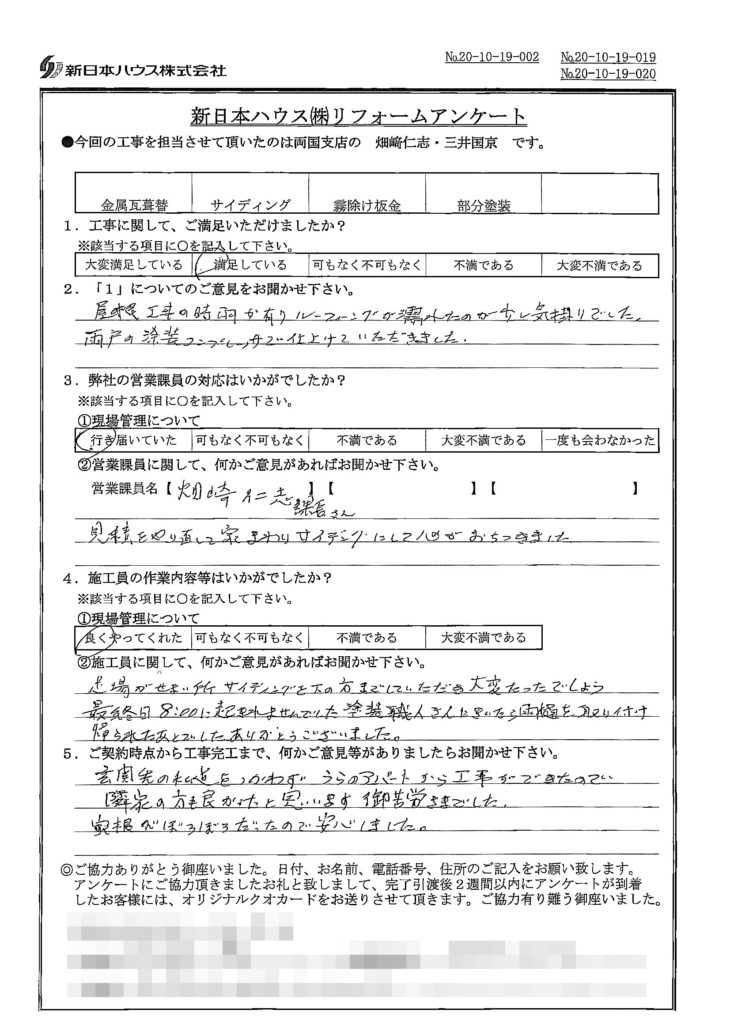 新日本ハウス株式会社
№20-10-19-002 №20-10-19-019
№20-10-19-020
新日本ハウス㈱リフォームアンケート
●今回の工事を担当させて頂いたのは両国支店の 畑﨑仁志・三井国京 です。
金属瓦葺替 サイディング 霧除け板金 部分塗装
1．工事に関して、ご満足いただけましたか？
※該当する項目に○を記入して下さい。
大変満足している 満足している 可もなく不可もなく 不満である 大変不満である
2．「1」についてのご意見をお聞かせ下さい。
屋根工事の時雨が有りルーフィングが濡れたのが少し気掛りでした。
雨戸の塗装コンプレッサで仕上げていただきました。
3．弊社の営業課員の対応はいかがでしたか？
※該当する項目に○を記入して下さい。
①現場管理について
行き届いていた 可もなく不可もなく 不満である 大変不満である 一度も会わなかった
②営業課員に関して、何かご意見があればお聞かせ下さい。
営業課員名【畑崎仁志 】【 】【 】
課長さん
見積をやり直して家まわりサイディングにして心がおちつきました
4．施工員の作業内容等はいかがでしたか？
※該当する項目に○を記入して下さい。
①現場管理について
良くやってくれた 可もなく不可もなく 不満である 大変不満である
②施工員に関して、何かご意見があればお聞かせ下さい。
足場がせまい所サイディングを下の方までしていただき大変だったでしょう
最終日8:00に起きれませんでした塗装職人さんにきいたら雨樋を取り付け
帰られたあとでしたありがとうございました。
5．ご契約時点から工事完工まで、何かご意見等がありましたらお聞かせ下さい。
玄関先の私道をつかわず うらのアパートから工事ができたので
隣家の方も良かったと思います 御苦労さまでした。
屋根がぼろぼろだったので安心しました。
◎ご協力ありがとう御座いました。日付、お名前、電話番号、住所のご記入をお願い致します。
アンケートにご協力頂きましたお礼と致しまして、完了引渡後2週間以内にアンケートが到着
したお客様には、オリジナルクオカードをお送りさせて頂きます。ご協力有り難う御座いました。